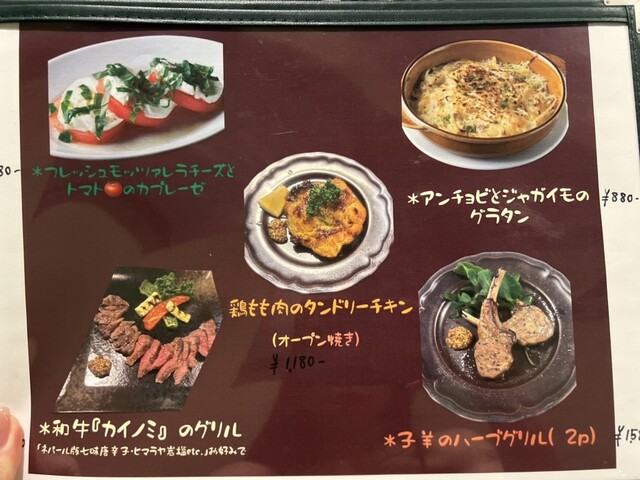 80-
*フレッシュモッツァレラチーズと
トマト🍅のカプレーゼ
*アンチョビとジャガイモの
グラタン
¥880-
鶏もも肉のタンドリーチキン
(オーブン焼き)
¥1,180-
*和牛『カイノミ』のグリル
「ネパール版七味唐辛子・ヒマラヤ岩塩etc.」お好みで
*子羊のハーブグリル(2p)
¥1,58